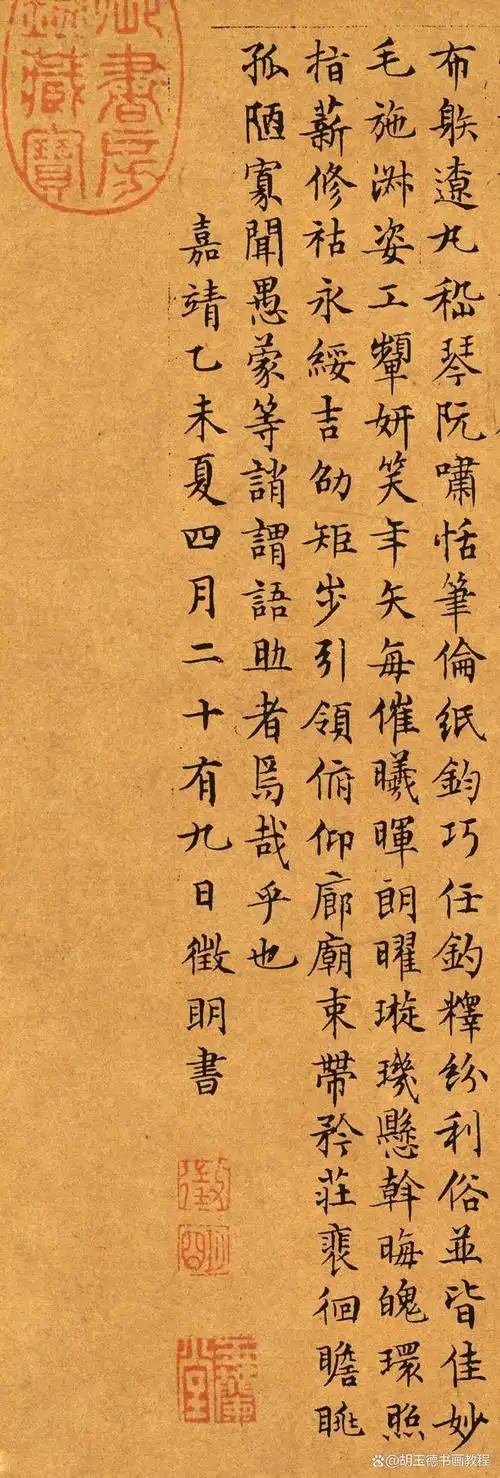 布䠶遼丸嵇琴阮嘯恬筆倫紙鈞巧任釣釋紛利俗並皆佳妙
毛施淑姿工顰妍笑年矢每催曦暉朗曜璇璣懸斡晦魄環照
指薪修祜永綏吉劭矩步引領俯仰廊廟束帶矜莊裴徊瞻眺
孤陋寡聞愚蒙等誚謂語助者焉哉乎也
嘉靖乙未夏四月二十有九日徵明書
徵明
玉蘭堂
御書房鑑藏寶
胡玉德书画教程